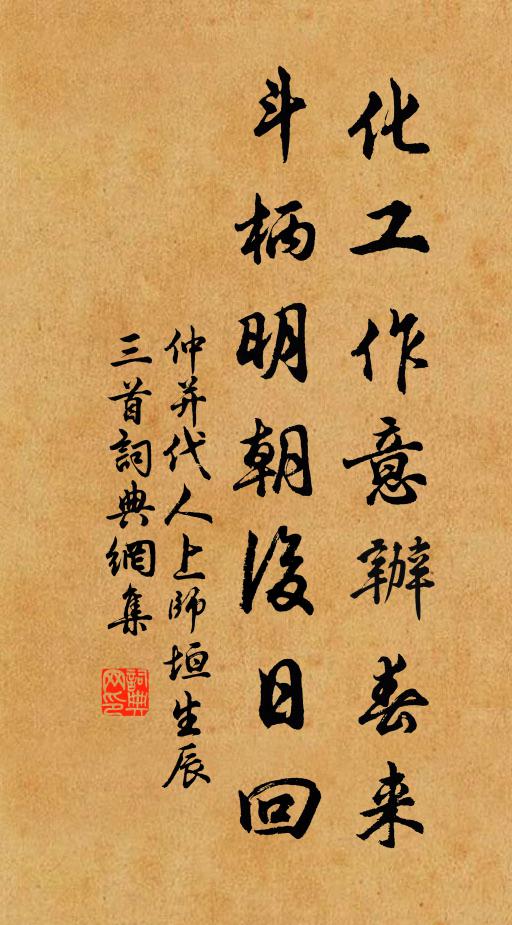 化工作意辦春来
斗柄明朝後日回
仲并代人上師垣生辰
三首詞典網集
詞典
网印